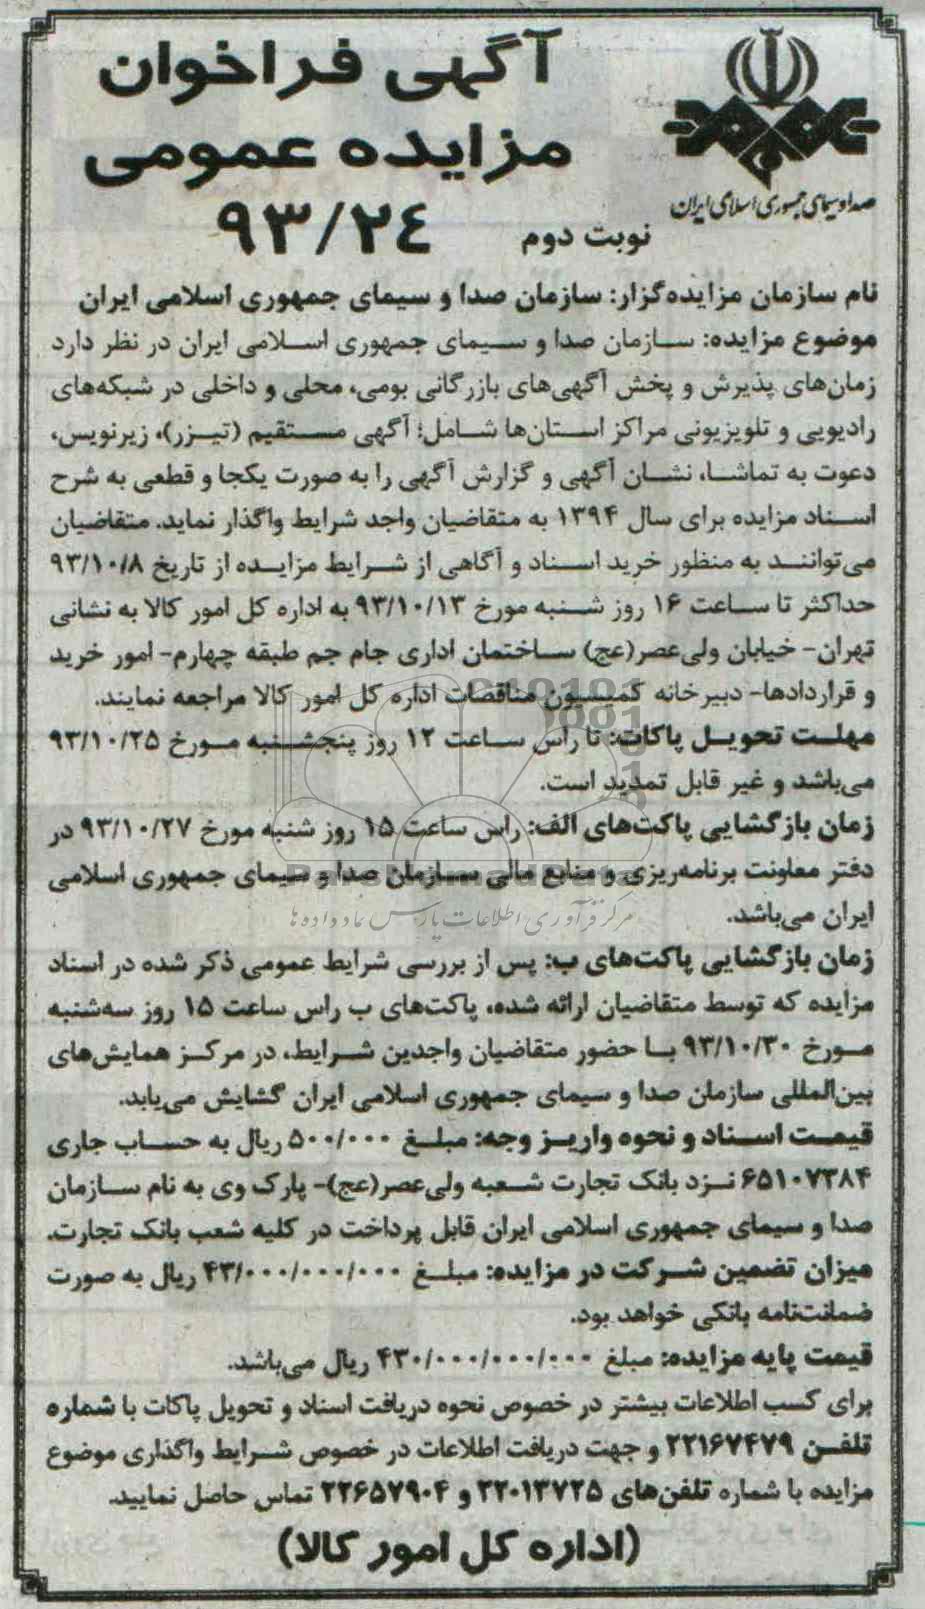 آگهی فراخوان
مزایده عمومی
۹۳/۲۴
نوبت دوم
صدا و سیمای جمهوری اسلامی ایران
نام سازمان مزایده‌گزار: سازمان صدا و سیمای جمهوری اسلامی ایران
موضوع مزایده: سازمان صدا و سیمای جمهوری اسلامی ایران در نظر دارد
زمان‌های پذیرش و پخش آگهی‌های بازرگانی بومی، محلی و داخلی در شبکه‌های
رادیویی و تلویزیونی مراکز استان‌ها شامل؛ آگهی مستقیم (تیزر)، زیرنویس،
دعوت به تماشا، نشان آگهی و گزارش آگهی را به صورت یکجا و قطعی به شرح
اسناد مزایده برای سال ۱۳۹۴ به متقاضیان واجد شرایط واگذار نماید. متقاضیان
می‌توانند به منظور خرید اسناد و آگاهی از شرایط مزایده از تاریخ ۹۳/۱۰/۸
حداکثر تا ساعت ۱۶ روز شنبه مورخ ۹۳/۱۰/۱۳ به اداره کل امور کالا به نشانی
تهران- خیابان ولی‌عصر(عج) ساختمان اداری جام جم طبقه چهارم- امور خرید
و قراردادها- دبیرخانه کمیسیون مناقصات اداره کل امور کالا مراجعه نمایند.
مهلت تحویل پاکات: تا راس ساعت ۱۲ روز پنجشنبه مورخ ۹۳/۱۰/۲۵
می‌باشد و غیر قابل تمدید است.
زمان بازگشایی پاکت‌های الف: راس ساعت ۱۵ روز شنبه مورخ ۹۳/۱۰/۲۷ در
دفتر معاونت برنامه‌ریزی و منابع مالی سازمان صدا و سیمای جمهوری اسلامی
ایران می‌باشد.
مرکز فرآوری اطلاعات پارس نماد داده‌ها
زمان بازگشایی پاکت‌های ب: پس از بررسی شرایط عمومی ذکر شده در اسناد
مزایده که توسط متقاضیان ارائه شده، پاکت‌های ب راس ساعت ۱۵ روز سه‌شنبه
مورخ ۹۳/۱۰/۳۰ با حضور متقاضیان واجدین شرایط، در مرکز همایش‌های
بین‌المللی سازمان صدا و سیمای جمهوری اسلامی ایران گشایش می‌یابد.
قیمت اسناد و نحوه واریز وجه: مبلغ ۵۰۰/۰۰۰ ریال به حساب جاری
۶۵۱۰۷۳۸۴ نزد بانک تجارت شعبه ولی‌عصر(عج)- پارک وی به نام سازمان
صدا و سیمای جمهوری اسلامی ایران قابل پرداخت در کلیه شعب بانک تجارت.
میزان تضمین شرکت در مزایده: مبلغ ۴۳/۰۰۰/۰۰۰/۰۰۰ ریال به صورت
ضمانتنامه بانکی خواهد بود.
قیمت پایه مزایده: مبلغ ۴۳۰/۰۰۰/۰۰۰/۰۰۰ ریال می‌باشد.
برای کسب اطلاعات بیشتر در خصوص نحوه دریافت اسناد و تحویل پاکات با شماره
تلفن ۲۲۱۶۷۴۷۹ و جهت دریافت اطلاعات در خصوص شرایط واگذاری موضوع
مزایده با شماره تلفن‌های ۲۲۰۱۳۷۲۵ و ۲۲۶۵۷۹۰۴ تماس حاصل نمایید.
(اداره کل امور کالا)